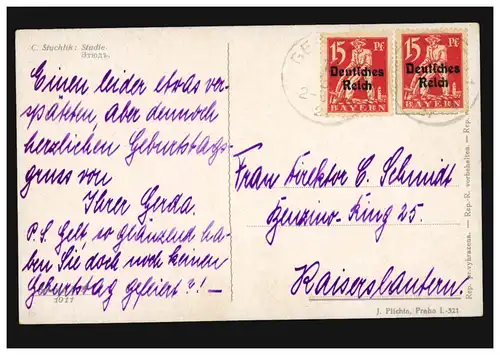 C. Stuchlik: Studie.
Этюдъ.
Einen leider etwas ver-
späteten aber dennoch
herzlichen Geburtstags-
gruss von
Ihrer Gerda.
P.S. Gelt, so glänzend ha-
ben Sie doch noch keinen
Geburtstag gefeiert?! —
1011
15 Pf
Deutsches
Reich
BAYERN
15 Pf
Deutsches
Reich
BAYERN
Frau Direktor C. Schmidt
Benzino-Ring 25.
Kaiserslautern.
J. Plichta, Praha I.-321
Rep.-R. vorbehalten. — Rep.